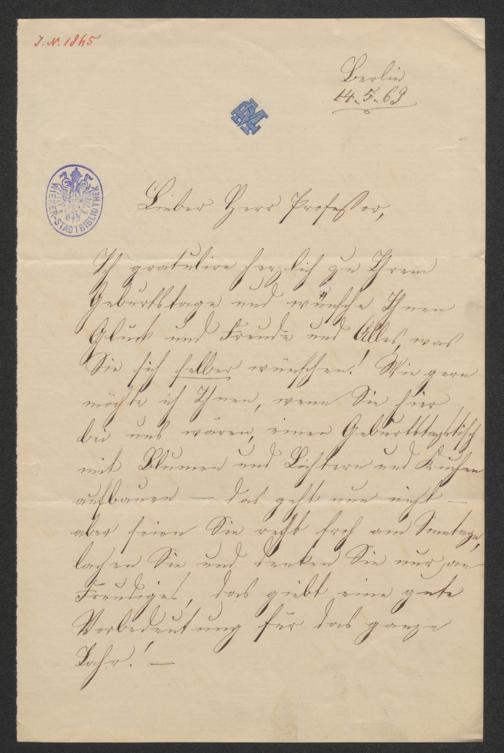 J. N. 1865
Berlin
14.5.69
WIENER-STADTBIBLIOTHEK
Lieber Herr Professor,
Ich gratulire herzlich zu Ihrem
Geburtstage und wünsche Ihnen
Glück und Freude und Alles, was
Sie sich selber wünschen! Wie gern
möchte ich Ihnen, wenn Sie hier
bei uns wären, einen Geburtstagstisch
mit Blumen und Lichtern und Kuchen
aufbauen — das geht nun nicht —
aber seien Sie recht froh am Sonntage,
lachen Sie und denken Sie nur an
Freudiges, das giebt eine gute
Vorbedeutung für das ganze
Jahr! —